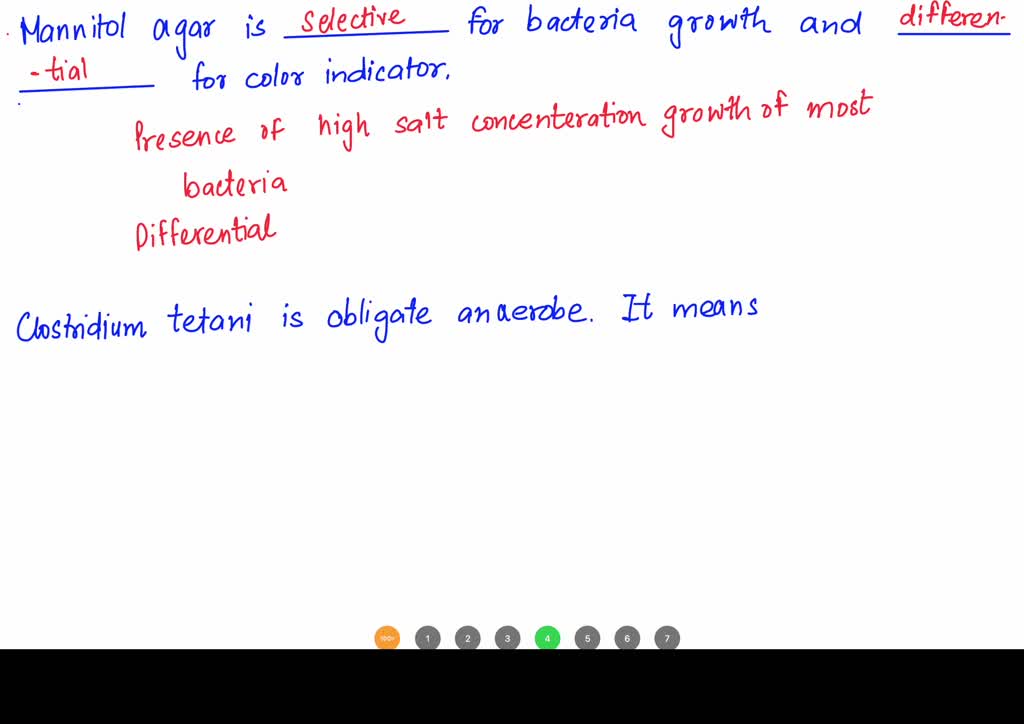 Mannitol agar is selective for bacteria growth and differen-
-tial for color indicator.
Presence of high salt concenteration growth of most
bacteria
Differential
Clostridium tetani is obligate anaerobe. It means
100% 1 2 3 4 5 6 7